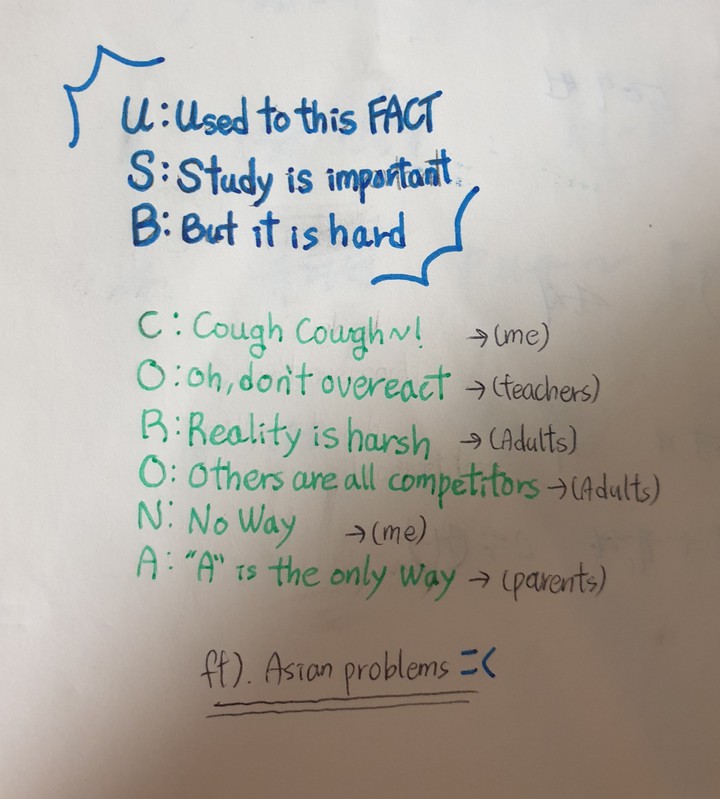 U: Used to this FACT
S: Study is important
B: But it is hard
C: Cough Cough~! → (me)
O: oh, don't overeact → (teachers)
R: Reality is harsh → (Adults)
O: Others are all competitors → (Adults)
N: No Way → (me)
A: "A" is the only way → (parents)
ft). Asian problems =<